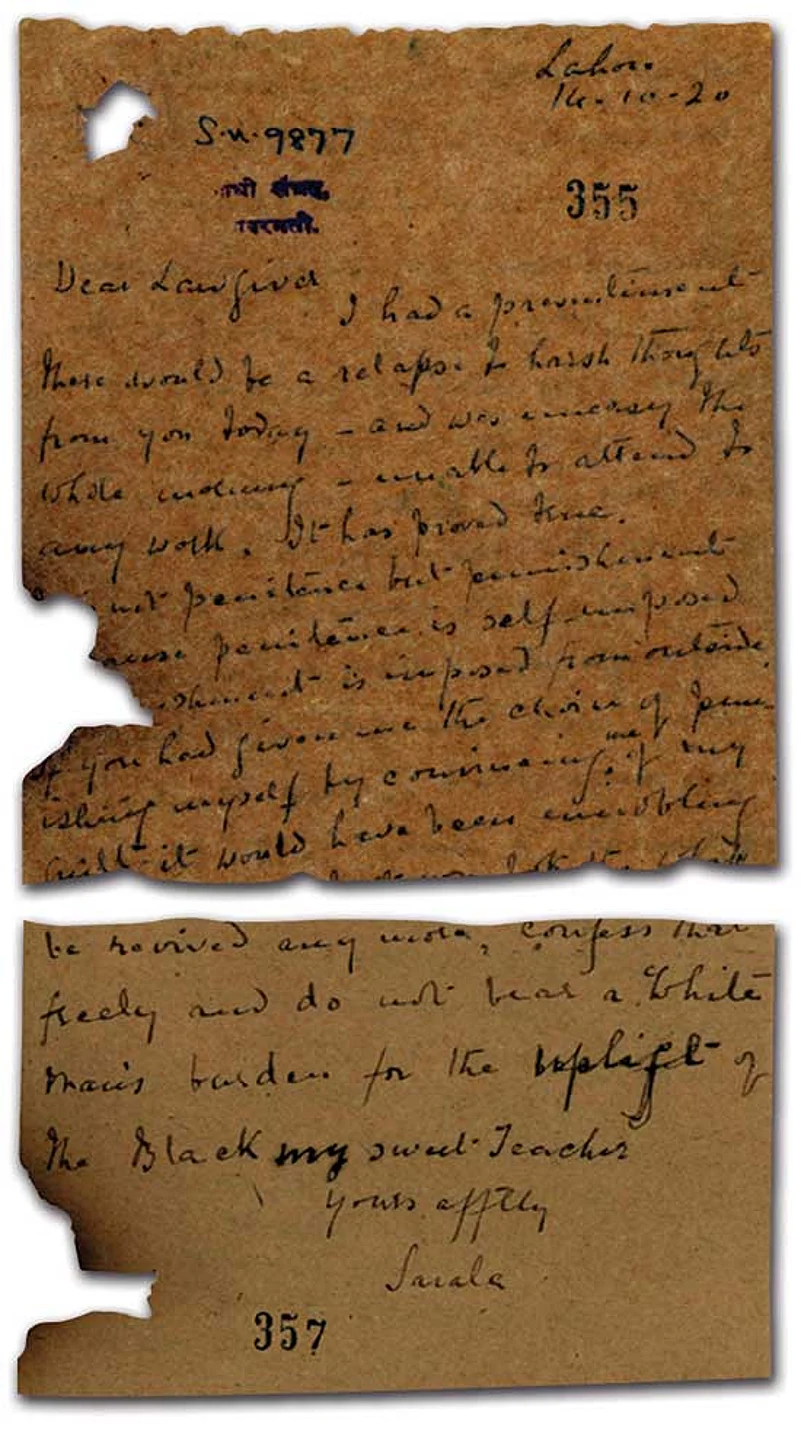 Lahore
14-10-20
S.N. 9877
355
Dear Lawgiver
I had a presentiment
there would be a relapse to harsh thoughts
from you today – and was uneasy the
whole morning – unable to attend to
any work. It has proved true.
not penitence but punishment
penitence is self-imposed
ishment is imposed from outside.
If you had given me the choice of pun-
ishing myself by convincing me of my
guilt it would have been ennobling
be revived any more, confess that
freely and do not bear a White
man's burden for the uplift of
the Black my sweet Teacher
Yours afftly
Sarala
357